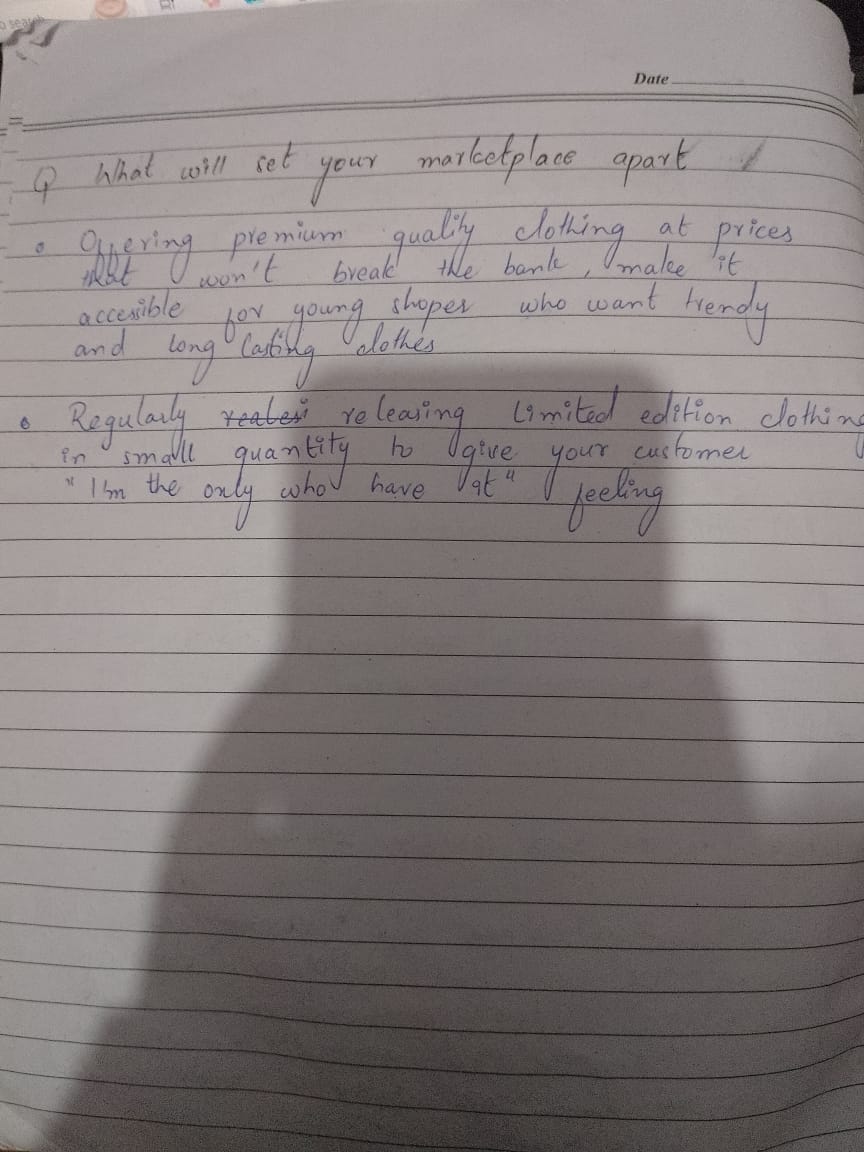 o search
Date
Q What will set your marketplace apart
Offering premium quality clothing at prices
that won't break the bank, make it
accessible for young shoper who want trendy
and long lasting clothes
Regularly releasing limited edition clothing
in small quantity to give your customer
"I'm the only who have it" feeling